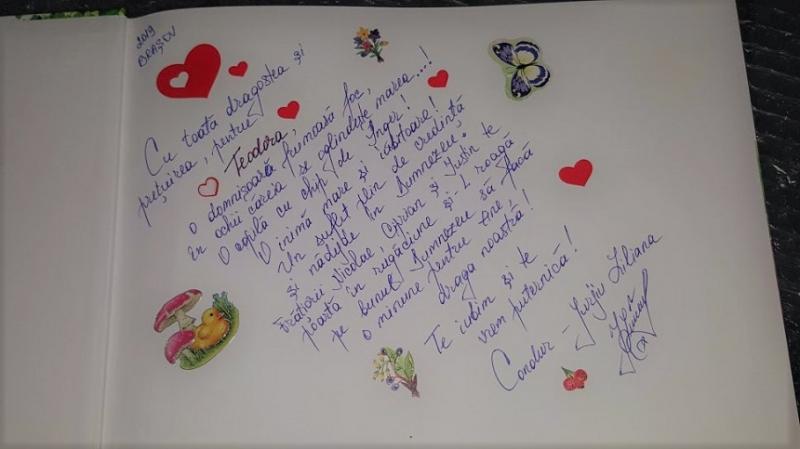 2019
BRAȘOV
Cu toată dragostea și
prețuirea, pentru
Teodora,
o domnișoară frumoasă foc,
în ochii căreia se oglindește marea...!
O copilă cu chip de Înger!
O inimă mare și iubitoare!
Un suflet plin de credință
și nădejde în Dumnezeu!
Frățiorii Nicolae, Ciprian și Iustin te
poartă în rugăciune și-L roagă
pe bunul Dumnezeu să facă
o minune pentru tine,
draga noastră!
Te iubim și te
vrem puternică!
Condur - Jurjiu Liliana